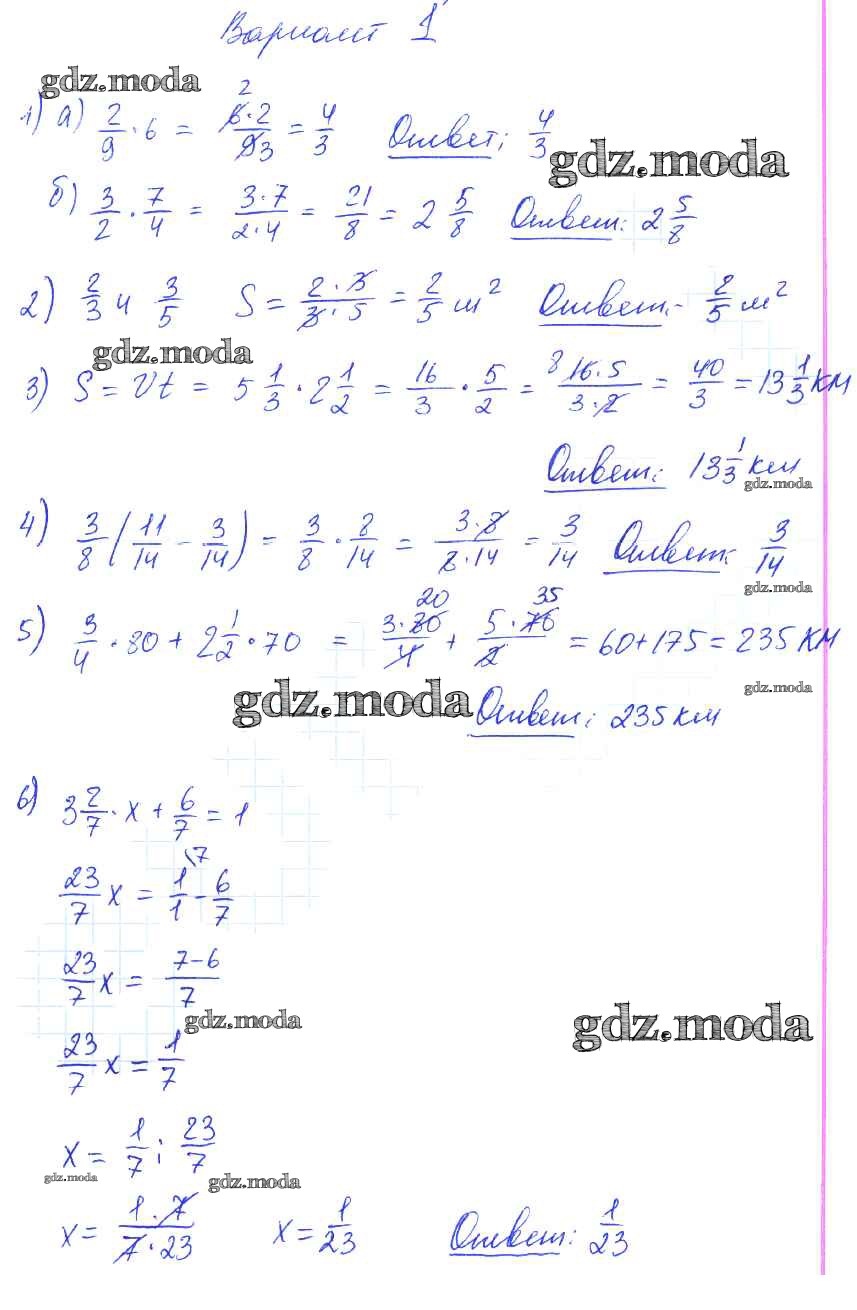 Вариант 1
gdz.moda
1) а) 2/9 · 6 = 6·2/9 2 3 = 4/3 Ответ: 4/3
gdz.moda
б) 3/2 · 7/4 = 3·7/2·4 = 21/8 = 2 5/8 Ответ: 2 5/8
2) 2/3 и 3/5 S = 2·3/3·5 = 2/5 м² Ответ: 2/5 м²
gdz.moda
3) S = Vt = 5 1/3 · 2 1/2 = 16/3 · 5/2 = 8 16·5/3·2 = 40/3 = 13 1/3 км
Ответ: 13 1/3 км
gdz.moda
4) 3/8 (11/14 − 3/14) = 3/8 · 8/14 = 3·8/8·14 = 3/14 Ответ: 3/14
gdz.moda
5) 3/4 · 80 + 2 1/2 · 70 = 3·80/4 20 + 5·70/2 35 = 60+175 = 235 км
gdz.moda
gdz.moda
Ответ: 235 км
6) 3 2/7 · x + 6/7 = 1
23/7 x = 1/1 \7 − 6/7
23/7 x = 7−6/7
gdz.moda
gdz.moda
23/7 x = 1/7
x = 1/7 : 23/7
gdz.moda
gdz.moda
x = 1·7/7·23 x = 1/23 Ответ: 1/23